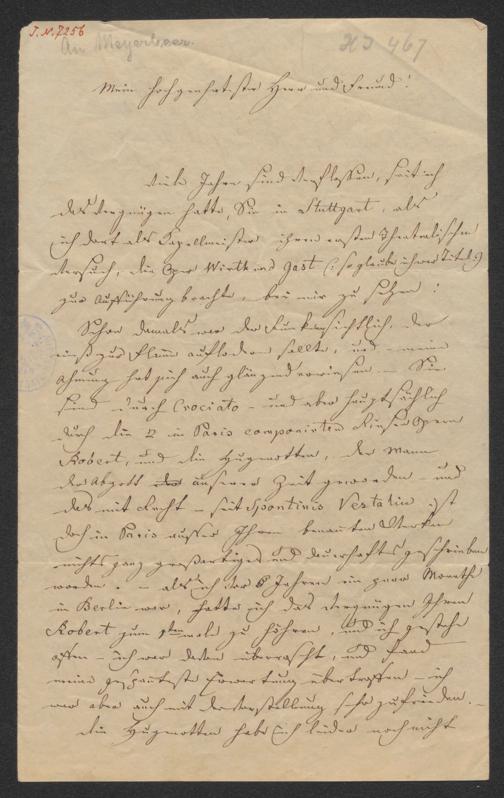 J.N. 7256
An Meyerbeer.
HJ 467
Mein hochgeehrtester Herr und Freund!
Viele Jahre sind verflossen, seit ich
das Vergnügen hatte, Sie in Stuttgart, als
ich dort als Capellmeister ihren ersten Theatralischen
Versuch, die Oper Wirth und Gast (: so glaube ich war Titel :)
zur Aufführung brachte, bei mir zu sehen!
Schon damals war der Funke sichtlich, der
einst zur Flamme auflodern sollte, und meine
Ahnung hat sich auch glänzend erwiesen — Sie
sind durch Crociato — und aber hauptsächlich
durch die 2 in Paris componirten Opern
Robert, und die Hugenotten, der Mann
der Abgott unserer Zeit geworden — und
das mit Recht — seit Spontinis Vestalin ist
doch in Paris ausser Ihren benannten Werken
nichts ganz großartiges und dauerhaftes geschrieben
worden. — als ich vor Jahren ein paar Monathe
in Berlin war, hatte ich das Vergnügen Ihren
Robert zum 1ten male zu höhren, und ich gestehe
offen — ich war davon überrascht, und fand
meine gespannteste Erwartung übertroffen — ich
war aber auch mit der Vorstellung sehr zufrieden. —
Die Hugenotten habe ich leider noch nicht